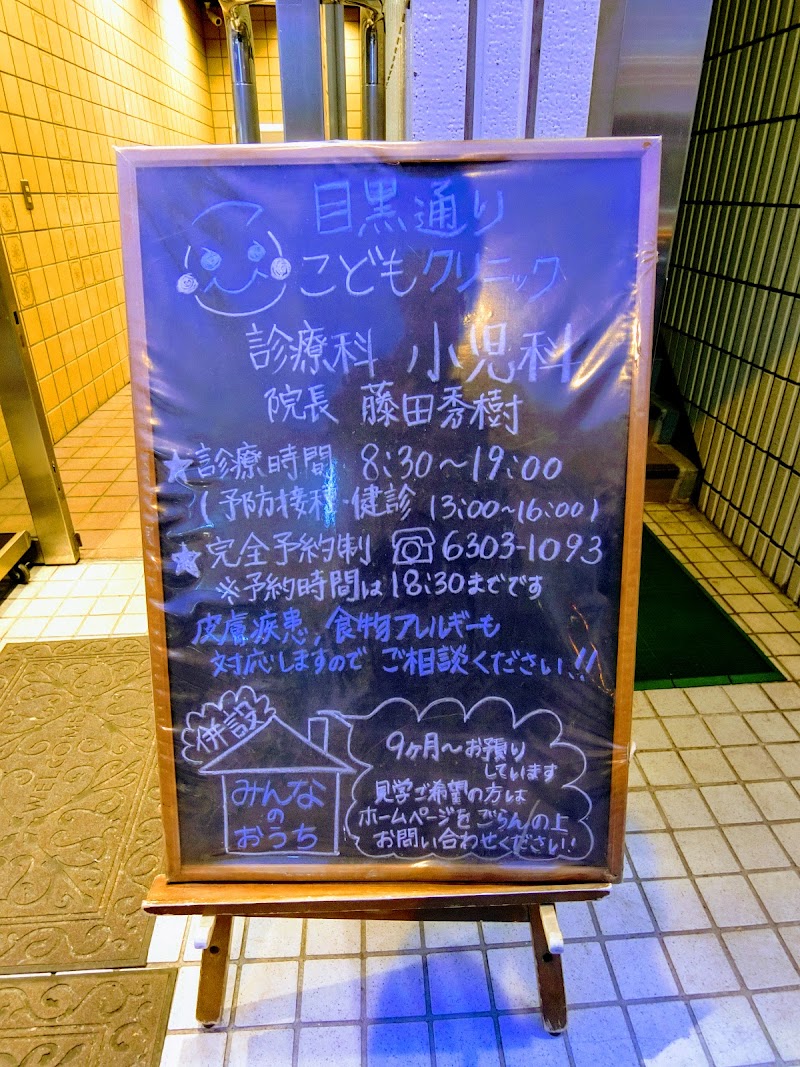 目黒通り
こどもクリニック
診療科 小児科
院長 藤田秀樹
★診療時間 8:30〜19:00
(予防接種・健診 13:00〜16:00)
★完全予約制 ☎6303-1093
※予約時間は18:30までです
皮膚疾患,食物アレルギーも
対応しますので ご相談ください!!
併設
みんな
の
おうち
9ヶ月〜お預り
しています
見学ご希望の方は
ホームページをごらんの上
お問い合わせください!
WELCOME